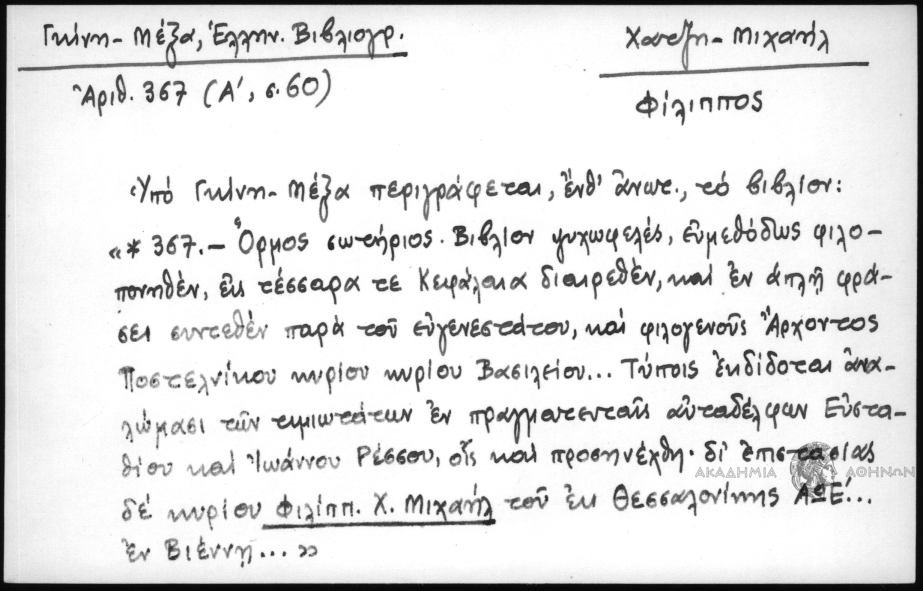 Γκίνη - Μέξα, Ἑλλην. Βιβλιογρ.
Ἀριθ. 367 (Α', σ. 60)
Χατζη - Μιχαήλ
Φίλιππος
Ὑπό Γκίνη - Μέξα περιγράφεται, ἔνθ' ἄνωτ., τό βιβλίον:
«* 367. - Ὅρμος σωτήριος. Βιβλίον ψυχωφελές, εὐμεθόδως φιλο-
πονηθέν, εἰς τέσσαρα τε Κεφάλαια διαιρεθέν, καί ἐν ἁπλῇ φρά-
σει συντεθέν παρά τοῦ εὐγενεστάτου, καί φιλογενοῦς Ἄρχοντος
Ποστελνίκου κυρίου κυρίου Βασιλείου... Τύποις ἐκδίδοται ἀνα-
λώμασι τῶν τιμιωτάτων ἐν πραγματευταῖς αὐταδέλφων Εὐστα-
θίου καί Ἰωάννου Ρέσσου, οἷς καί προσηνέχθη· δι' ἐπιστασίας
δέ κυρίου Φιλίππ. Χ. Μιχαήλ τοῦ ἐκ Θεσσαλονίκης ΑΩΕ'...
ἐν Βιέννῃ... »
ΑΚΑΔΗΜΙΑ ΑΘΗΝΩΝ